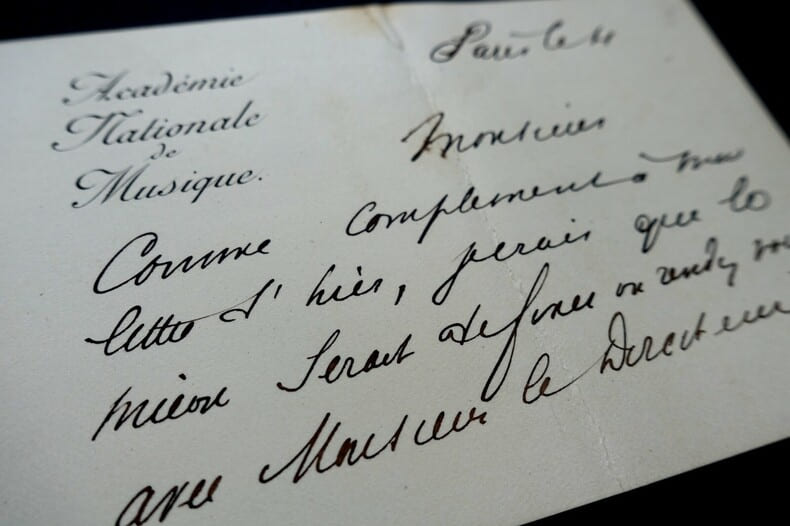 Académie
Nationale
de
Musique.
Paris le
Monsieur
Comme complement à ma
lettre d'hier, je crois que le
mieux serait de fixer un rendez vous
avec Monsieur le Directeur